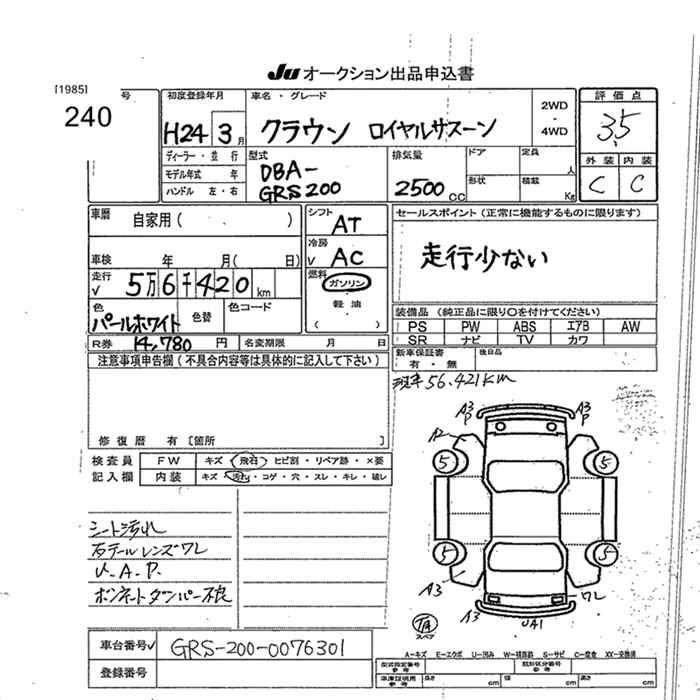 Ju オークション出品申込書
[1985]
240
号
初度登録年月
H24 3月
車名・グレード
クラウン ロイヤルサルーン
2WD
・
4WD
評価点
3.5
外装 内装
C C
ディーラー・並行
モデル年式 年
ハンドル 左・右
型式
DBA-
GRS200
排気量
2500 CC
ドア
形状
定員 人
積載 Kg
車暦
自家用( )
車検 年 月( 日)
走行
√ 5万6千420 km
色
パールホワイト
色替
色コード
R券 14,780 円
名変期限 月 日
シフト AT
冷房
√ AC
燃料
ガソリン
軽油
( )
セールスポイント(正常に機能するものに限ります)
走行少ない
装備品(純正品に限り○を付けてください)
PS PW ABS エアB AW
SR ナビ TV カワ
新車保証書
有・無
後日品
注意事項申告欄(不具合内容等は具体的に記入して下さい)
修復暦 有〔箇所 〕
現車56,421km
検査員
記入欄
FW キズ・飛石・ヒビ割・リペア跡・×要
内装 キズ・汚れ・コゲ・穴・スレ・キレ・破レ
シート汚れ
右テールレンズワレ
U.A.P.
ボンネットダンパー不良
A3
P
A3
P
A2
5
5
5
5
A3
A3
UA1
ワレ
TA
スペア
車台番号√ GRS-200-0076301
登録番号
A=キズ E=エクボ U=凹み W=補修跡 S=サビ C=腐食 XX=交換済
型式指定番号
参考
類別区分番号
参考
車庫証明用
参考
長さ cm 幅 cm 高さ cm